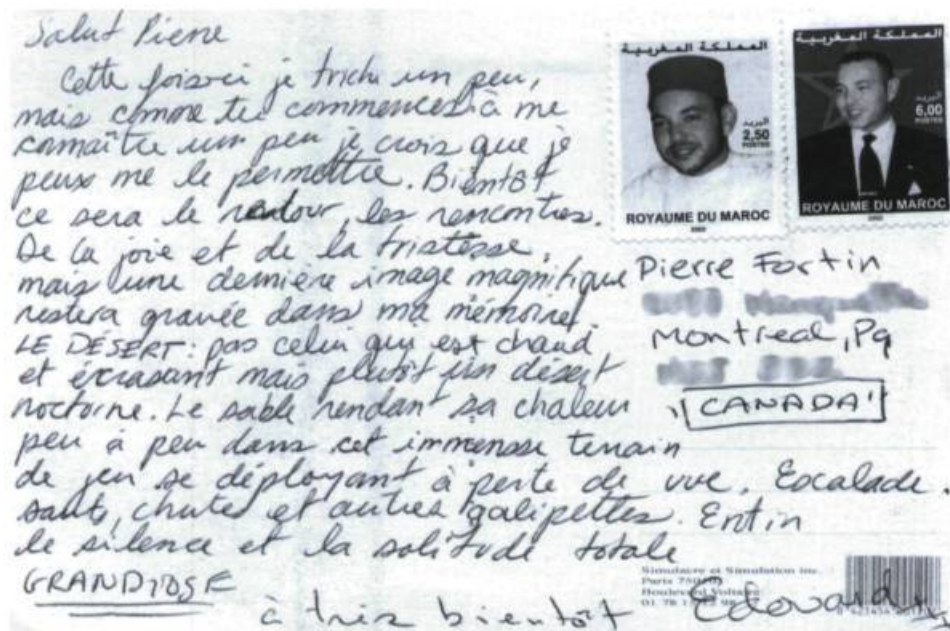 Salut Pierre
Cette fois-ci je triche un peu,
mais comme tu commences à me
connaître un peu je crois que je
peux me le permettre. Bientôt
ce sera le retour, les rencontres.
De la joie et de la tristesse,
mais une dernière image magnifique
restera gravée dans ma mémoire.
LE DÉSERT: pas celui qui est chaud
et écrasant mais plutôt un désert
nocturne. Le sable rendant sa chaleur
peu à peu dans cet immense terrain
de jeu se déployant à perte de vue. Escalade,
sauts, chutes et autres galipettes. Enfin
le silence et la solitude totale
GRANDIOSE
à très bientôt Edouard
المملكة المغربية
البريد
2,50
POSTES
ROYAUME DU MAROC
2002
المملكة المغربية
البريد
6,00
POSTES
ROYAUME DU MAROC
2002
Pierre Fortin
Montreal, Pq
"CANADA"
Simulacre et Simulation inc.
Paris
Boulevard Voltaire
01 78